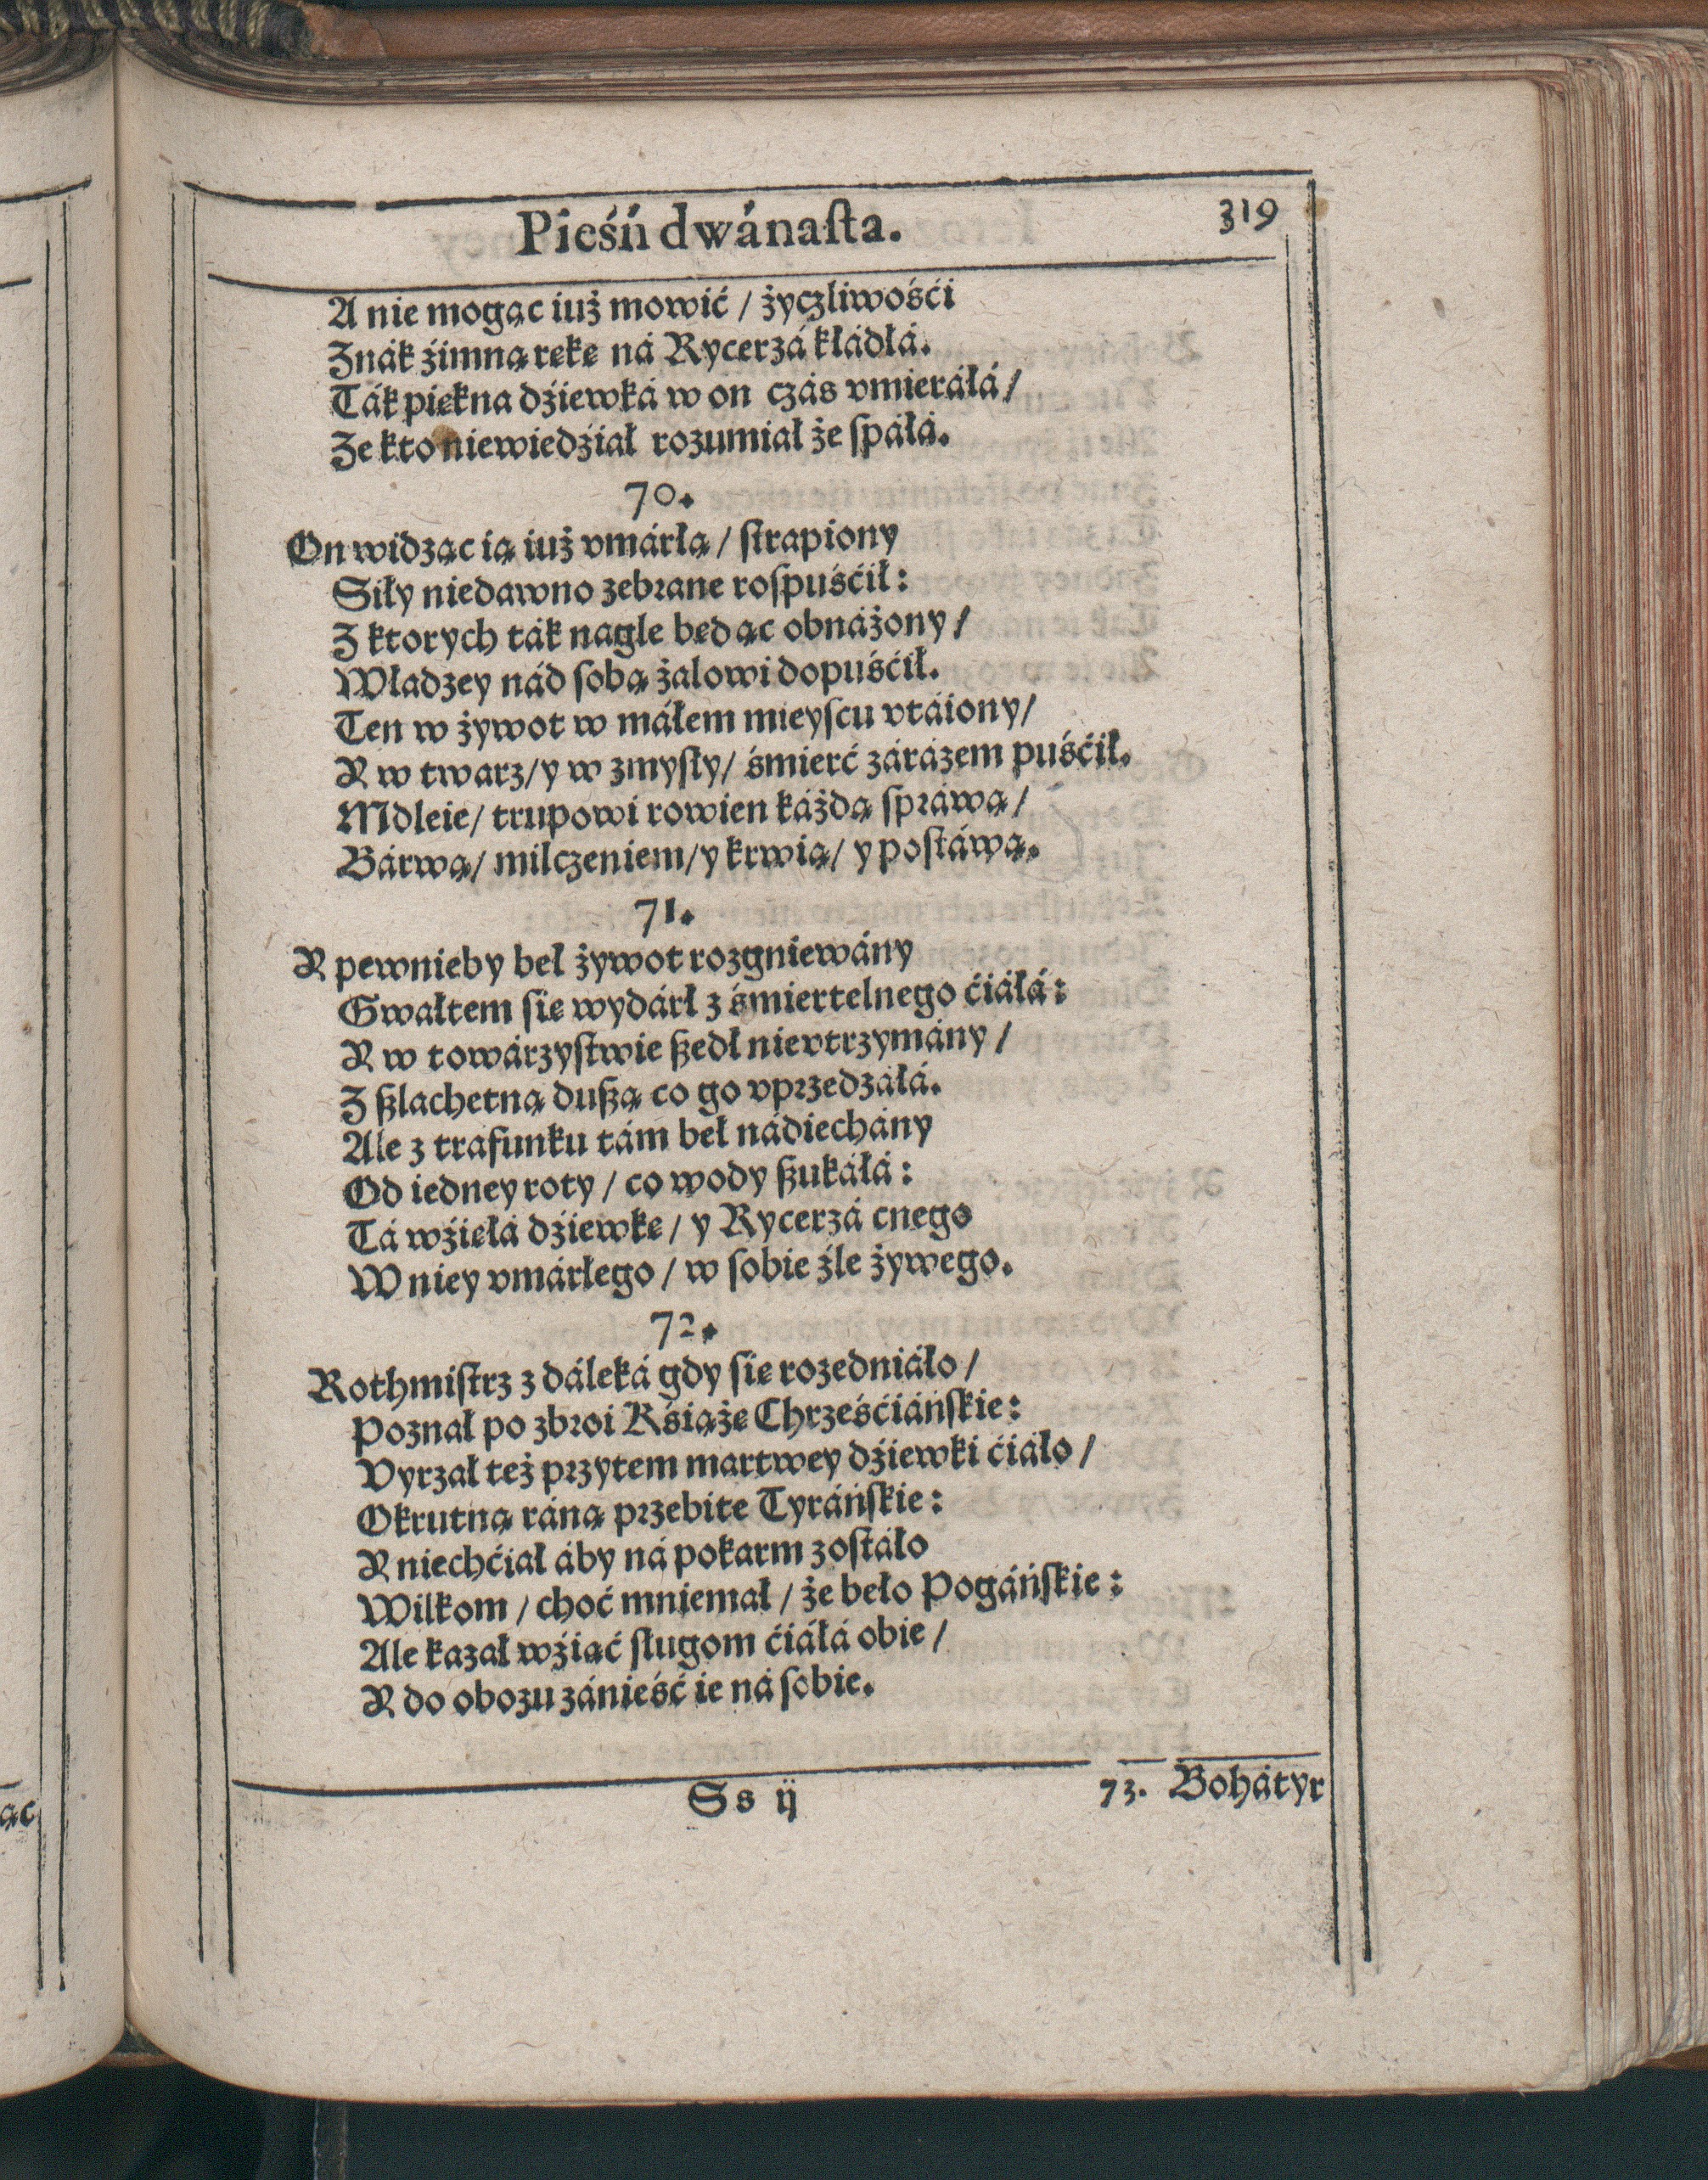 Pieśń dwánaſta.
319
A nie mogąc iuż mowić / życzliwośći
Znák źimną rękę ná Rycerzá kłádłá.
Ták piękna dźiewká w on czás vmieráłá /
Ze kto niewiedźiał rozumiał że ſpáłá.
70.
On widząc ią iuż vmárłą / ſtrapiony
Siły niedawno zebrane roſpuśćił:
Z ktorych ták nagle będąc obnáżony /
Władzey nád ſobą żalowi dopuśćił.
Ten w żywot w máłem mieyſcu vtáiony /
Y w twarz / y w zmyſły / śmierć zárázem puśćił.
Mdleie / trupowi rowien káżdą ſpráwą /
Bárwą / milczeniem / y krwią / y poſtáwą.
71.
Y pewnieby beł żywot rozgniewány
Gwałtem ſię wydárł z śmiertelnego ćiáłá:
Y w towárzyſtwie ßedł nievtrzymány /
Z ßlachetną dußą co go vprzedzáłá.
Ale z trafunku tám beł nádiechány
Od iedney roty / co wody ßukáłá:
Tá wźięłá dźiewkę / y Rycerzá cnego
W niey vmárłego / w ſobie źle żywego.
72.
Rothmiſtrz z dáleká gdy ſię rozedniáło /
Poznał po zbroi Kśiążę Chrześćiáńſkie:
Vyrzał też przytem martwey dźiewki ćiáło /
Okrutną ráną przebite Tyráńſkie:
Y niechćiał áby ná pokarm zoſtáło
Wilkom / choć mniemał / że beło Pogáńſkie:
Ale kazał wźiąć ſługom ćiáłá obie /
Y do obozu zánieść ie ná ſobie.
Ss ij
73. Bohátyr
ąc